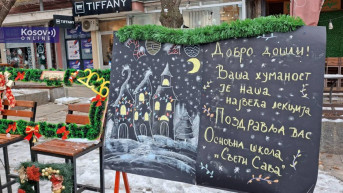 TIFFANY
Kosovo
ONLINE
2026
Добро дошли!
Ваша хуманост
је наша
највећа лекција
Поздравља вас
Основна школа
"Свети Сава"